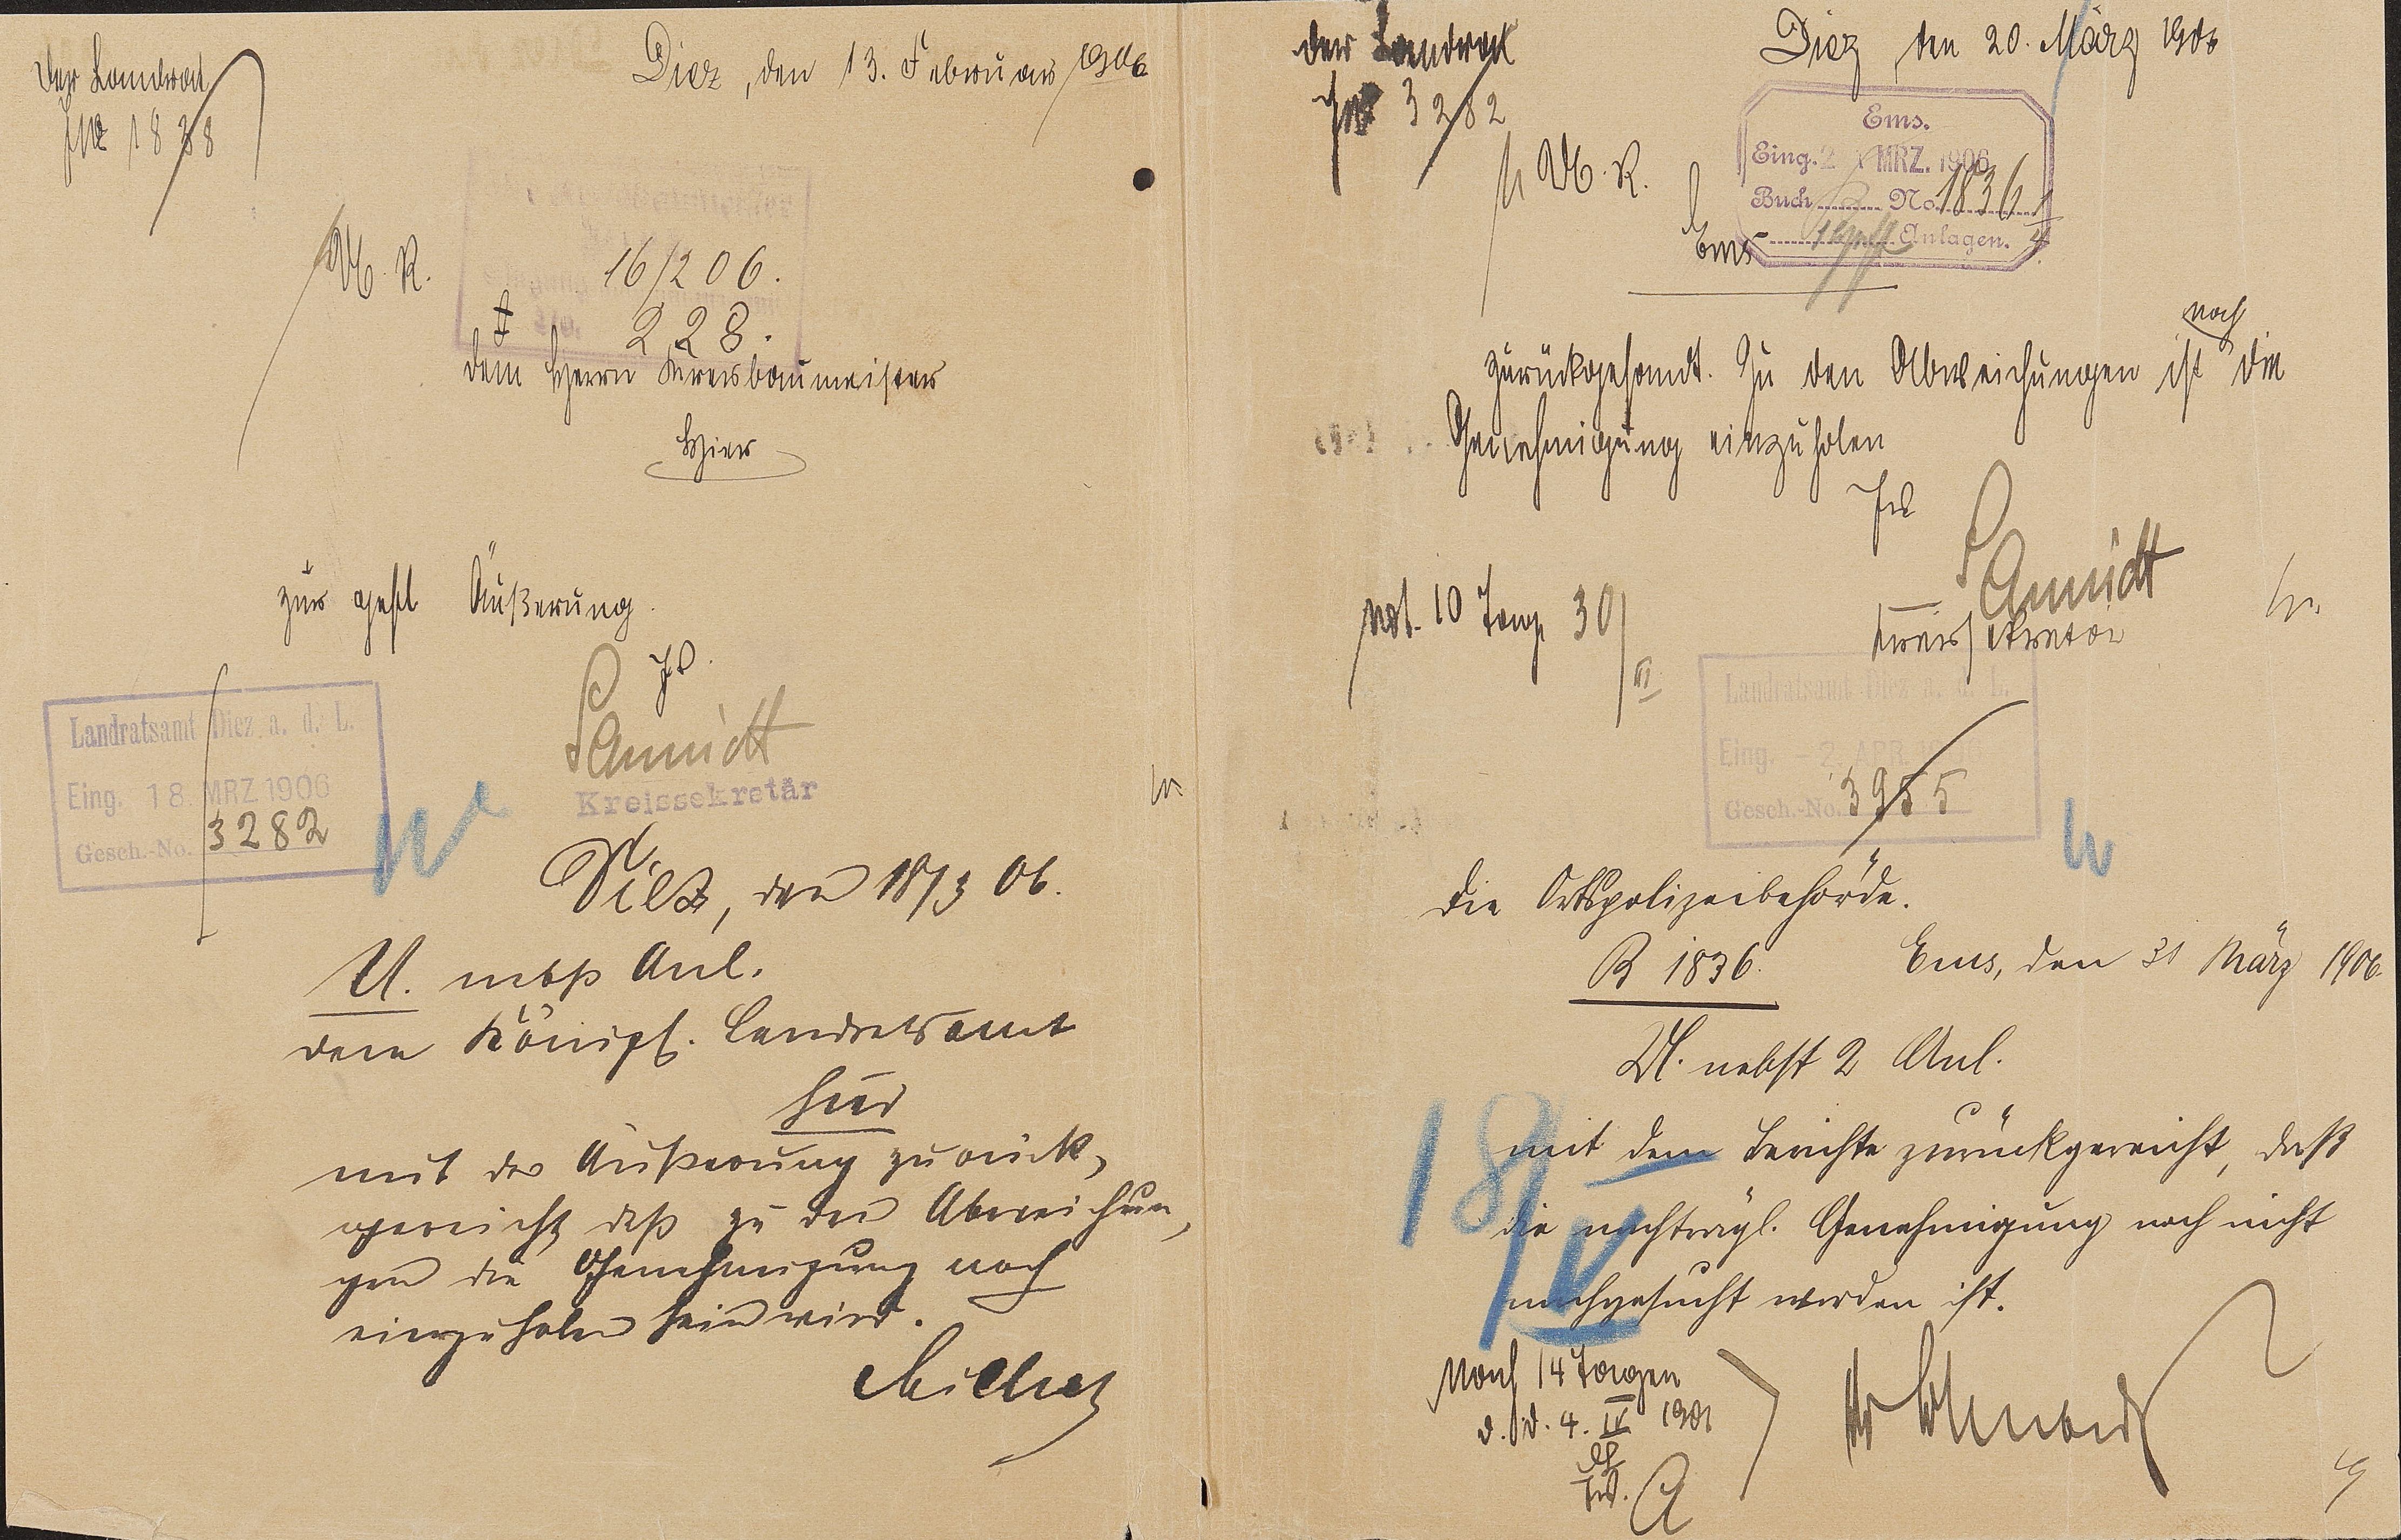 Der Landrat
JNo 1838
Diez, den 13. Februar 1906
U. R.
16/2 06.
228.
dem Herrn Kreisbaumeister
Hier
zur gefl. Äußerung.
JV.
Schmidt
Kreissekretär
Landratsamt Diez a. d. L.
Eing. 18. MRZ 1906
Gesch.-No. 3282
Diez, den 18/3 06.
U. nebst Anl.
dem Königl. Landratsamt
hier
mit der Äußerung zurück-
gereicht, daß zu den Abweichun-
gen die Genehmigung noch
einzuholen sein wird.
Der Landrat
JNo 3282
Diez, den 20. März 1906
U. R.
Ems.
Eing. 21 MRZ. 1906
Buch No. 1836
Anlagen.
Ems
zurückgesandt. Zu den Abweichungen ist noch die
Genehmigung einzuholen
JV
Schmidt
Kreissekretär
Not. 10 Tage 30/III
Landratsamt Diez a. d. L.
Eing. - 2. APR. 1906
Gesch.-No. 3955
Die Ortspolizeibehörde.
B 1836.
Ems, den 31 März 1906
U. nebst 2 Anl.
mit dem Berichte zurückgereicht, daß
die nachträgl. Genehmigung noch nicht
nachgesucht worden ist.
18/IV
Nach 14 Tagen
D. d. 4. IV 1906